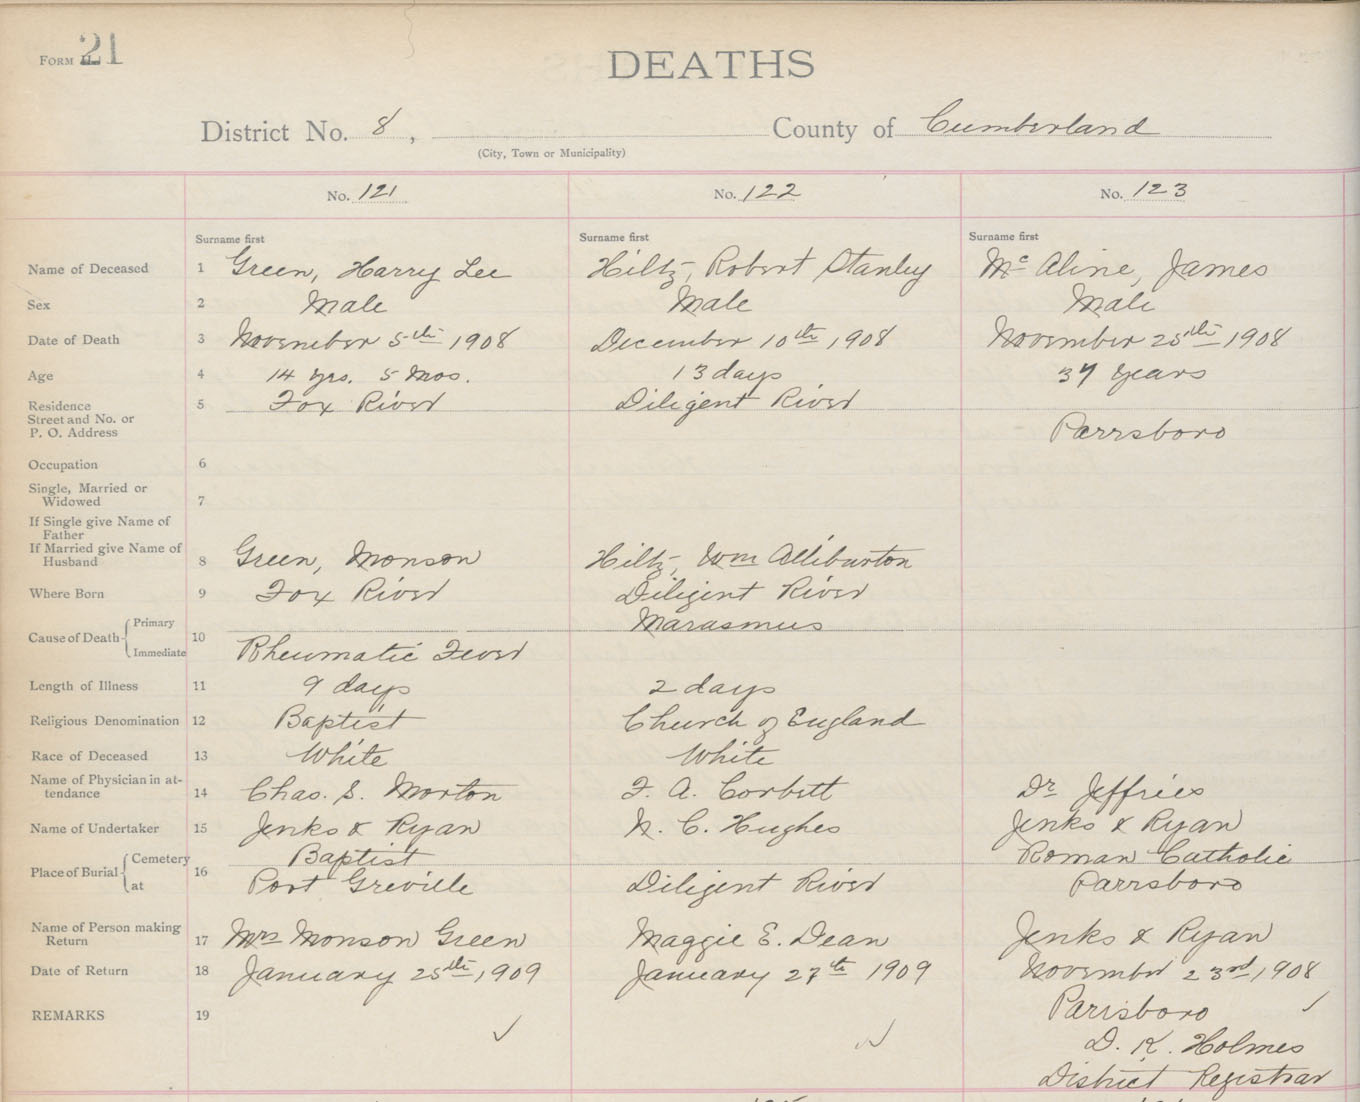 FORM 21
DEATHS
District No. 8, County of Cumberland
(City, Town or Municipality)
No. 121 No. 122 No. 123
Surname first Surname first Surname first
Name of Deceased 1 Green, Harry Lee Hiltz, Robert Stanley McAline, James
Sex 2 Male Male Male
Date of Death 3 November 5th 1908 December 10th 1908 November 25th 1908
Age 4 14 yrs. 5 Mos. 13 days 37 years
Residence 5 Fox River Diligent River
Street and No. or
P. O. Address Parrsboro
Occupation 6
Single, Married or
Widowed 7
If Single give Name of
Father
If Married give Name of
Husband 8 Green, Monson Hiltz, Wm Alliburton
Where Born 9 Fox River Diligent River
Cause of Death Primary 10 Marasmus
Immediate Rheumatic Fever
Length of Illness 11 9 days 2 days
Religious Denomination 12 Baptist Church of England
Race of Deceased 13 White White
Name of Physician in at-
tendance 14 Chas. S. Morton F. A. Corbett Dr Jeffries
Name of Undertaker 15 Jenks & Ryan N. C. Hughes Jenks & Ryan
Place of Burial Cemetery 16 Baptist Roman Catholic
at Port Greville Diligent River Parrsboro
Name of Person making
Return 17 Mrs Monson Green Maggie E. Dean Jenks & Ryan
Date of Return 18 January 25th, 1909 January 27th 1909 November 23rd, 1908
REMARKS 19 Parrsboro
D. K. Holmes
District Registrar